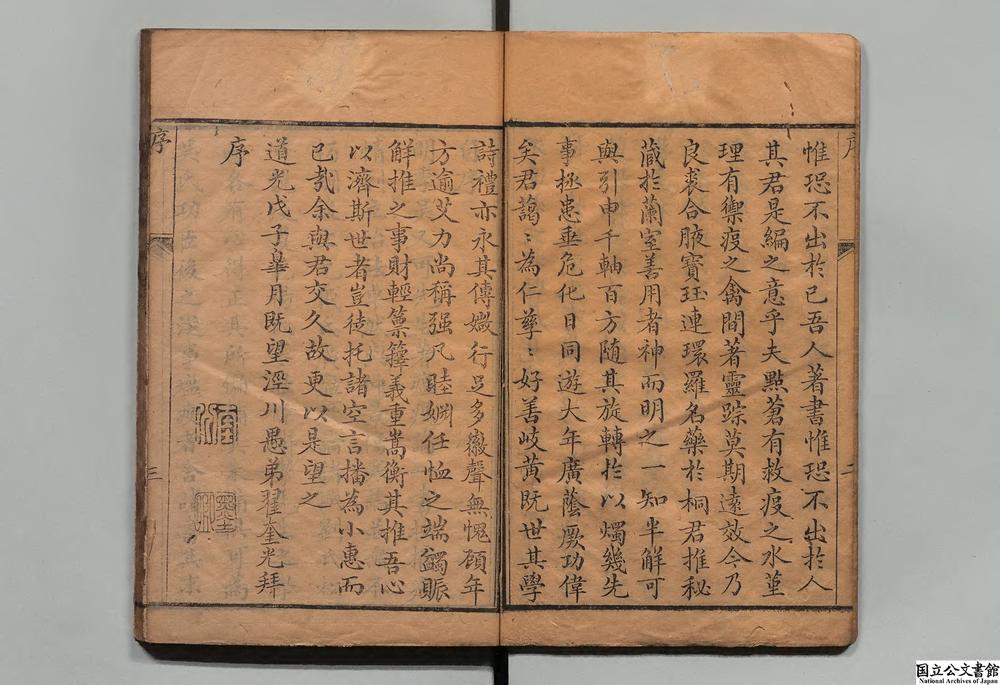 序
二
惟恐不出於己吾人著書惟恐不出於人
其君是編之意乎夫點蒼有救疫之水菫
理有禦疫之禽間著靈踪莫期遠效今乃
良裘合腋寶珏連環羅名藥於桐君推秘
蕆於蘭室善用者神而明之一知半解可
與引申千軸百方隨其旋轉於以燭幾先
事拯患垂危化日同遊大年廣蔭厥功偉
矣君藹〻為仁孳〻好善岐黃既世其學
詩禮亦永其傳媺行足多徽聲無愧顧年
方逾艾力尚稱强凡睦婣任恤之端蠲賑
解推之事財輕篥籜義重嵩衡其推吾心
以濟斯世者豈徒托諸空言播為小惠而
已哉余與君交久故更以是望之
道光戊子皋月既望涇川愚弟翟奎光拜
序
序
三
国立公文書館
National Archives of Japan